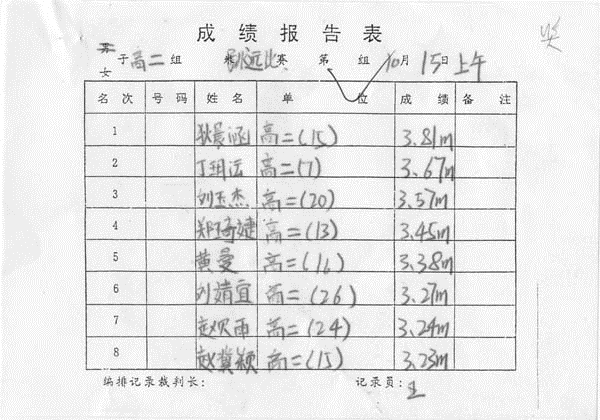 成绩报告表
女子高二组 跳远比赛 第 组 10月15日上午
名次 号码 姓名 单位 成绩 备注
1 狄晨涵 高二(15) 3.81m
2 丁玥 高二(7) 3.67m
3 刘玉杰 高二(20) 3.57m
4 郑琦婕 高二(13) 3.45m
5 黄曼 高二(16) 3.38m
6 刘婧宜 高二(26) 3.27m
7 赵 雨 高二(24) 3.24m
8 赵冀颖 高二(15) 3.23m
编排记录裁判长: 记录员: